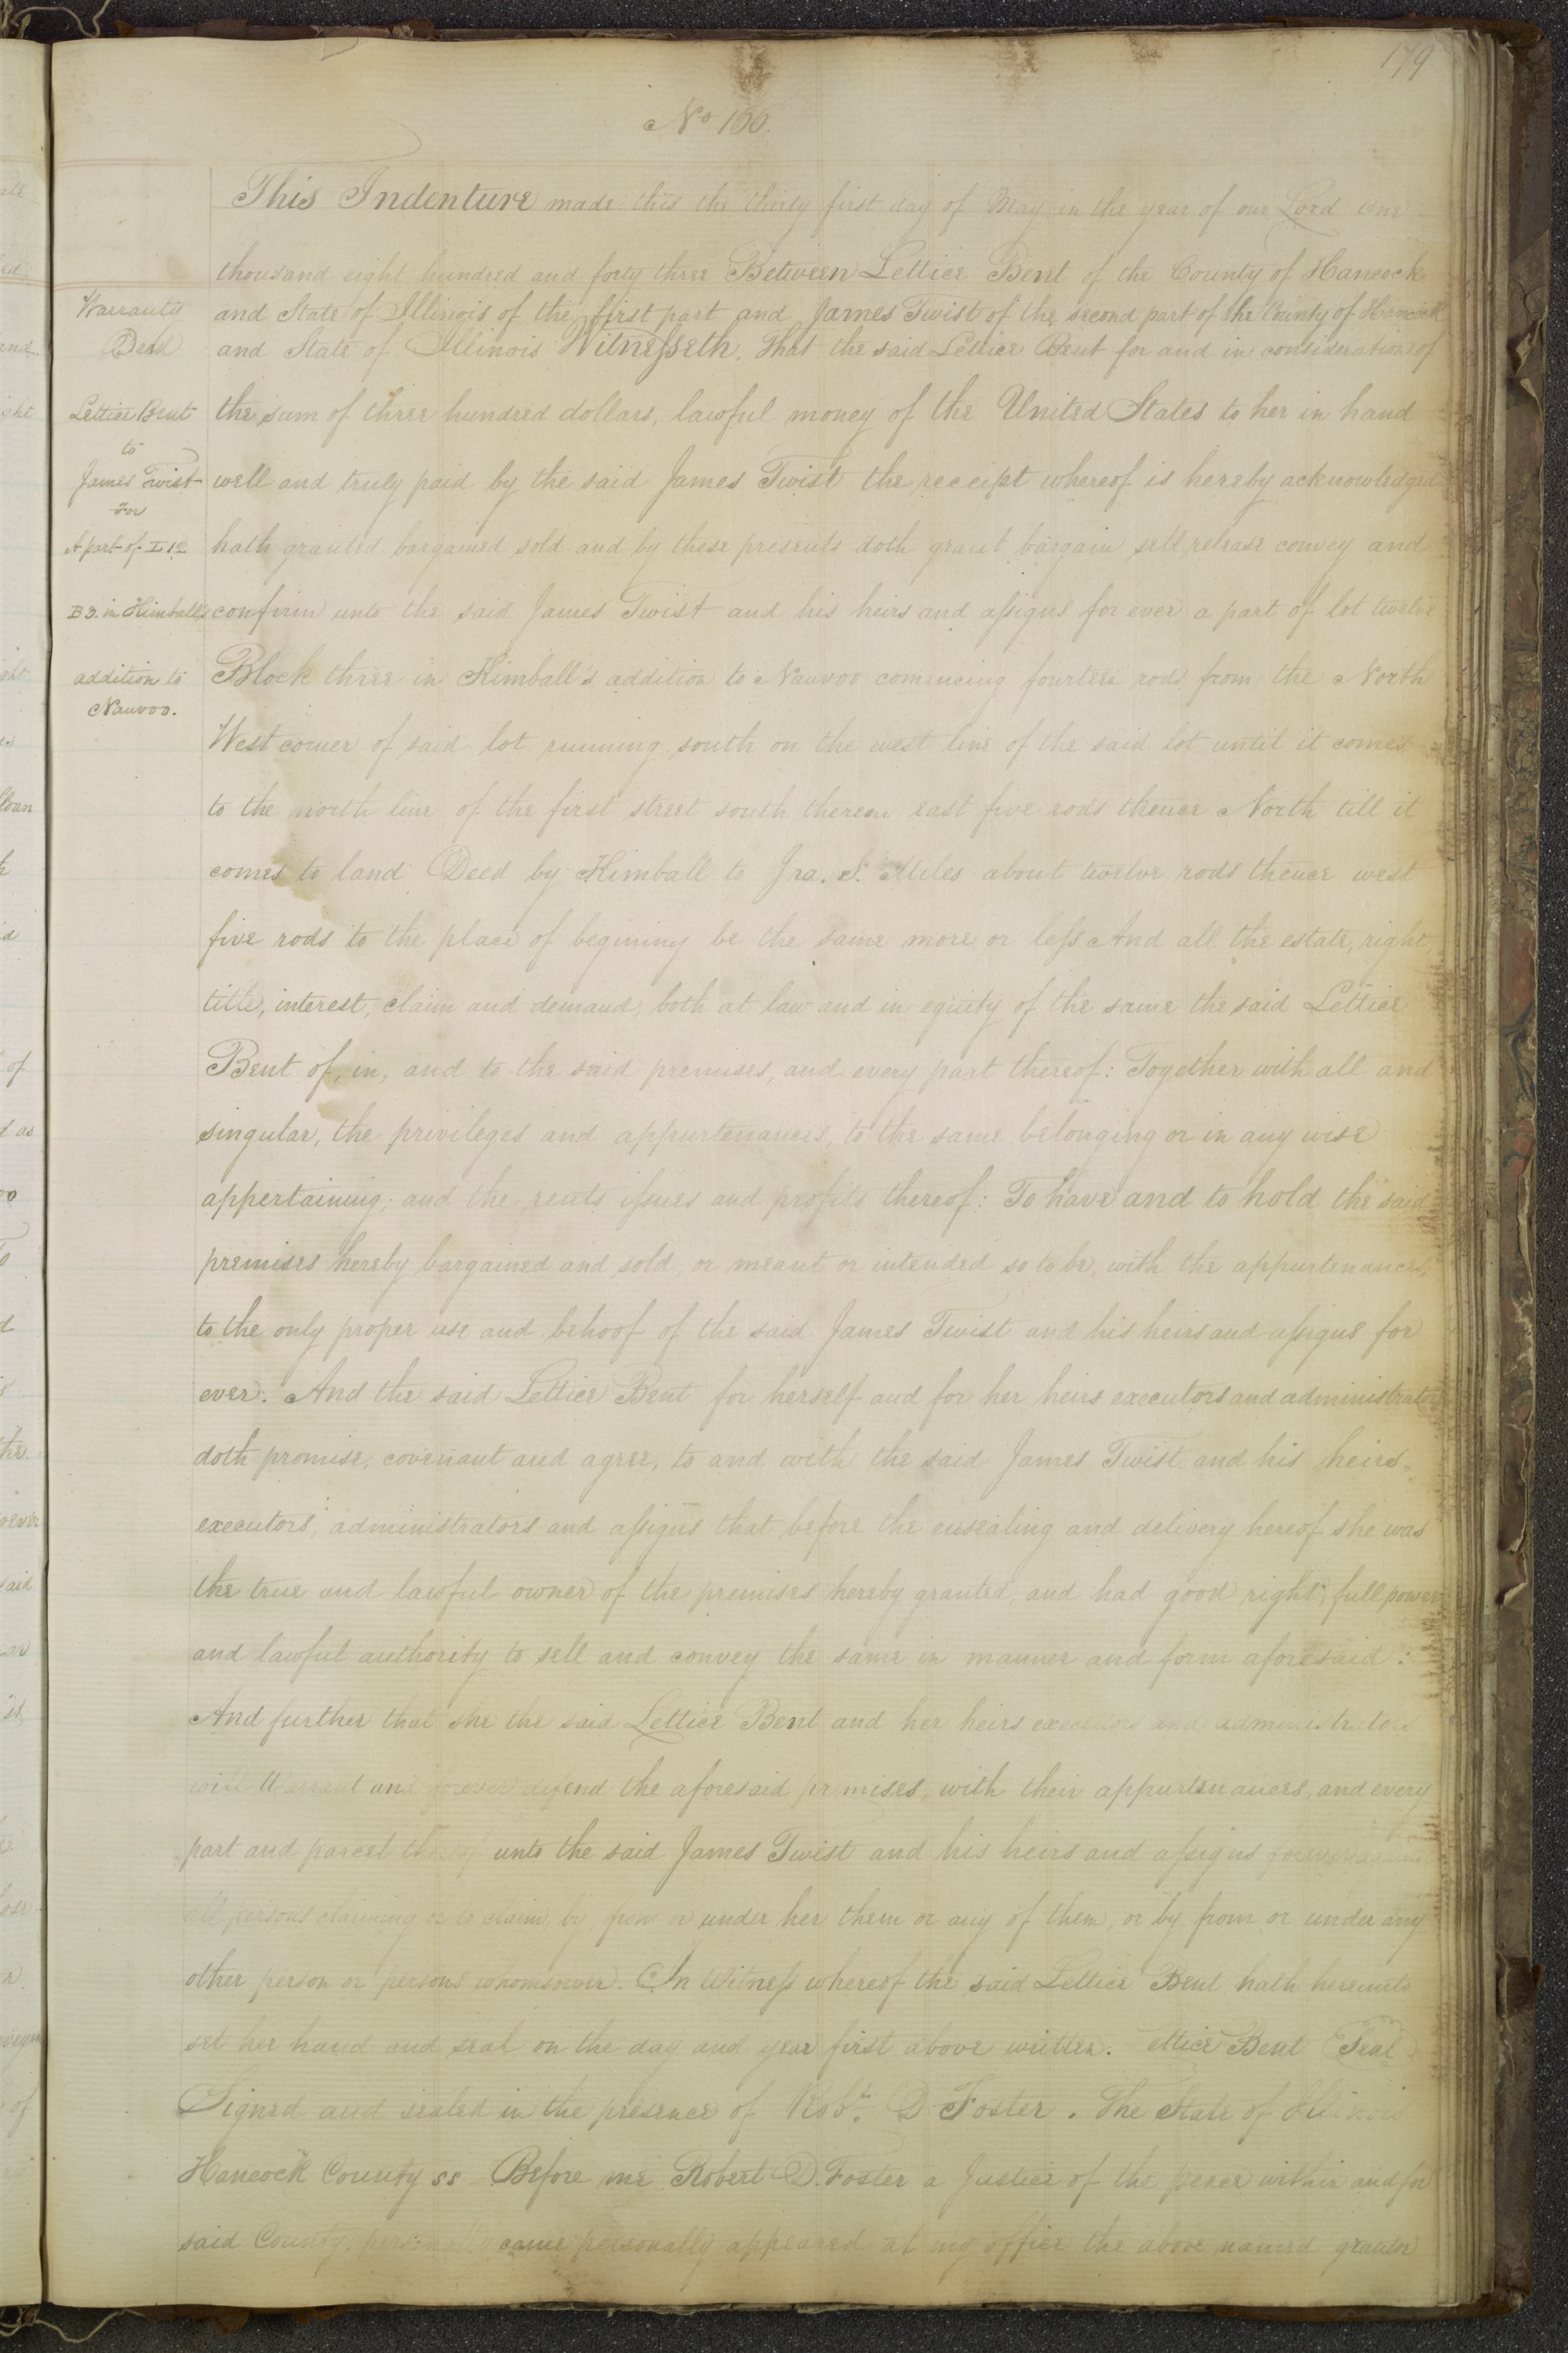 179
No 166.
This Indenture made this the thirty first day of May in the year of our Lord one
thousand eight hundred and forty three Between Lettice Bent of the County of Hancock
Warranty
and State of Illinois of the first part and James Twist of the second part of the County of Hancock
Deed
and State of Illinois Witnesseth, That the said Lettice Bent for and in consideration of
Lettice Bent
the sum of three hundred dollars, lawful money of the United States to her in hand
to
James Twist
well and truly paid by the said James Twist the receipt whereof is hereby acknowledged
For
A part of L 12
hath granted bargained sold and by these presents doth grant bargain sell release convey and
B 3. in Kimball's
confirm unto the said James Twist and his heirs and assigns for ever a part of lot twelve
addition to
Block three in Kimball's addition to Nauvoo comencing fourteen rods from the North
Nauvoo.
West corner of said lot running south on the west line of the said lot until it comes
to the north line of the first street south thereon east five rods thence North till it
comes to land Deed by Kimball to Ira. S. Miles about twelve rods thence west
five rods to the place of begining be the same more or less And all the estate, right,
title, interest, claim and demand, both at law and in equity of the same the said Lettice
Bent of, in, and to the said premises, and every part thereof: Together with all and
singular, the privileges and appurtenances, to the same belonging or in any wise
appertaining; and the rents issues and profits thereof: To have and to hold the said
premises hereby bargained and sold, or meant or intended so to be, with the appurtenances,
to the only proper use and behoof of the said James Twist and his heirs and assigns for
ever. And the said Lettice Bent for herself and for her heirs executors and administrators
doth promise, covenant and agree, to and with the said James Twist and his heirs,
executors, administrators and assigns that before the ensealing and delivery hereof she was
the true and lawful owner of the premises hereby granted, and had good right, full power
and lawful authority to sell and convey the same in manner and form aforesaid:
And further that she the said Lettice Bent and her heirs executors and administrators
will Warrant and forever defend the aforesaid pr mises, with their appurtenances, and every
part and parcel thereof unto the said James Twist and his heirs and assigns forever against
all persons claiming or to claim by from or under her them or any of them, or by from or under any
other person or persons whomsoever. In Witness whereof the said Lettice Bent hath hereunto
set her hand and seal on the day and year first above written. ettice Bent Seal
Signed and sealed in the presence of Robt. D Foster. The State of Illinois
Hancock County ss Before me Robert D. Foster a Justice of the peace within and for
said County, personally came personally appeared at my office the above named grantor